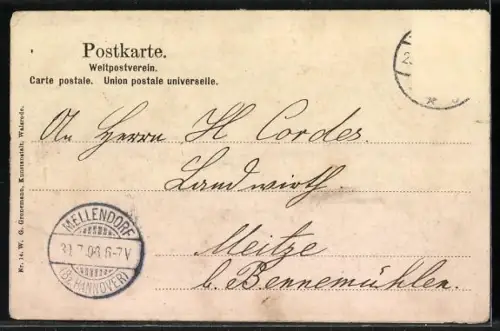 Postkarte.
Weltpostverein.
Carte postale. Union postale universelle.
An Herrn H Cordes
Landwirth.
Meitze
b. Bennemühlen.
MELLENDORF
31.7.03 6-7V
(BZ. HANNOVER)
Nr. 14. W. G. Grenemann, Kunstanstalt, Walsrode.